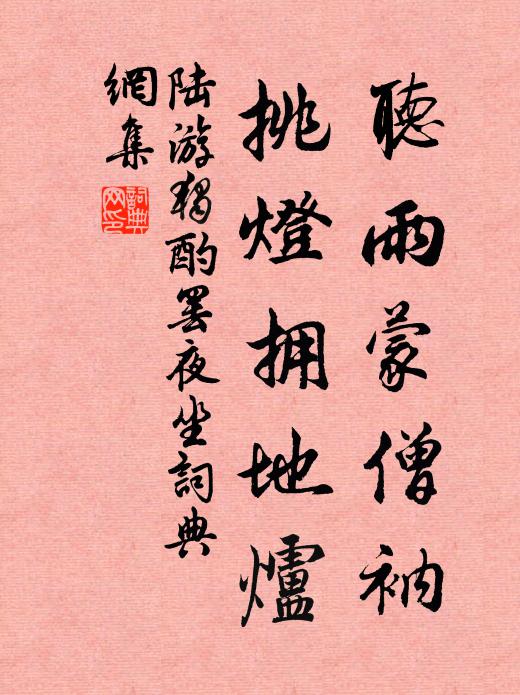 聽雨蒙僧衲
挑燈拥地爐
陆游獨酌罢夜坐詞典
網集
詞典
网印